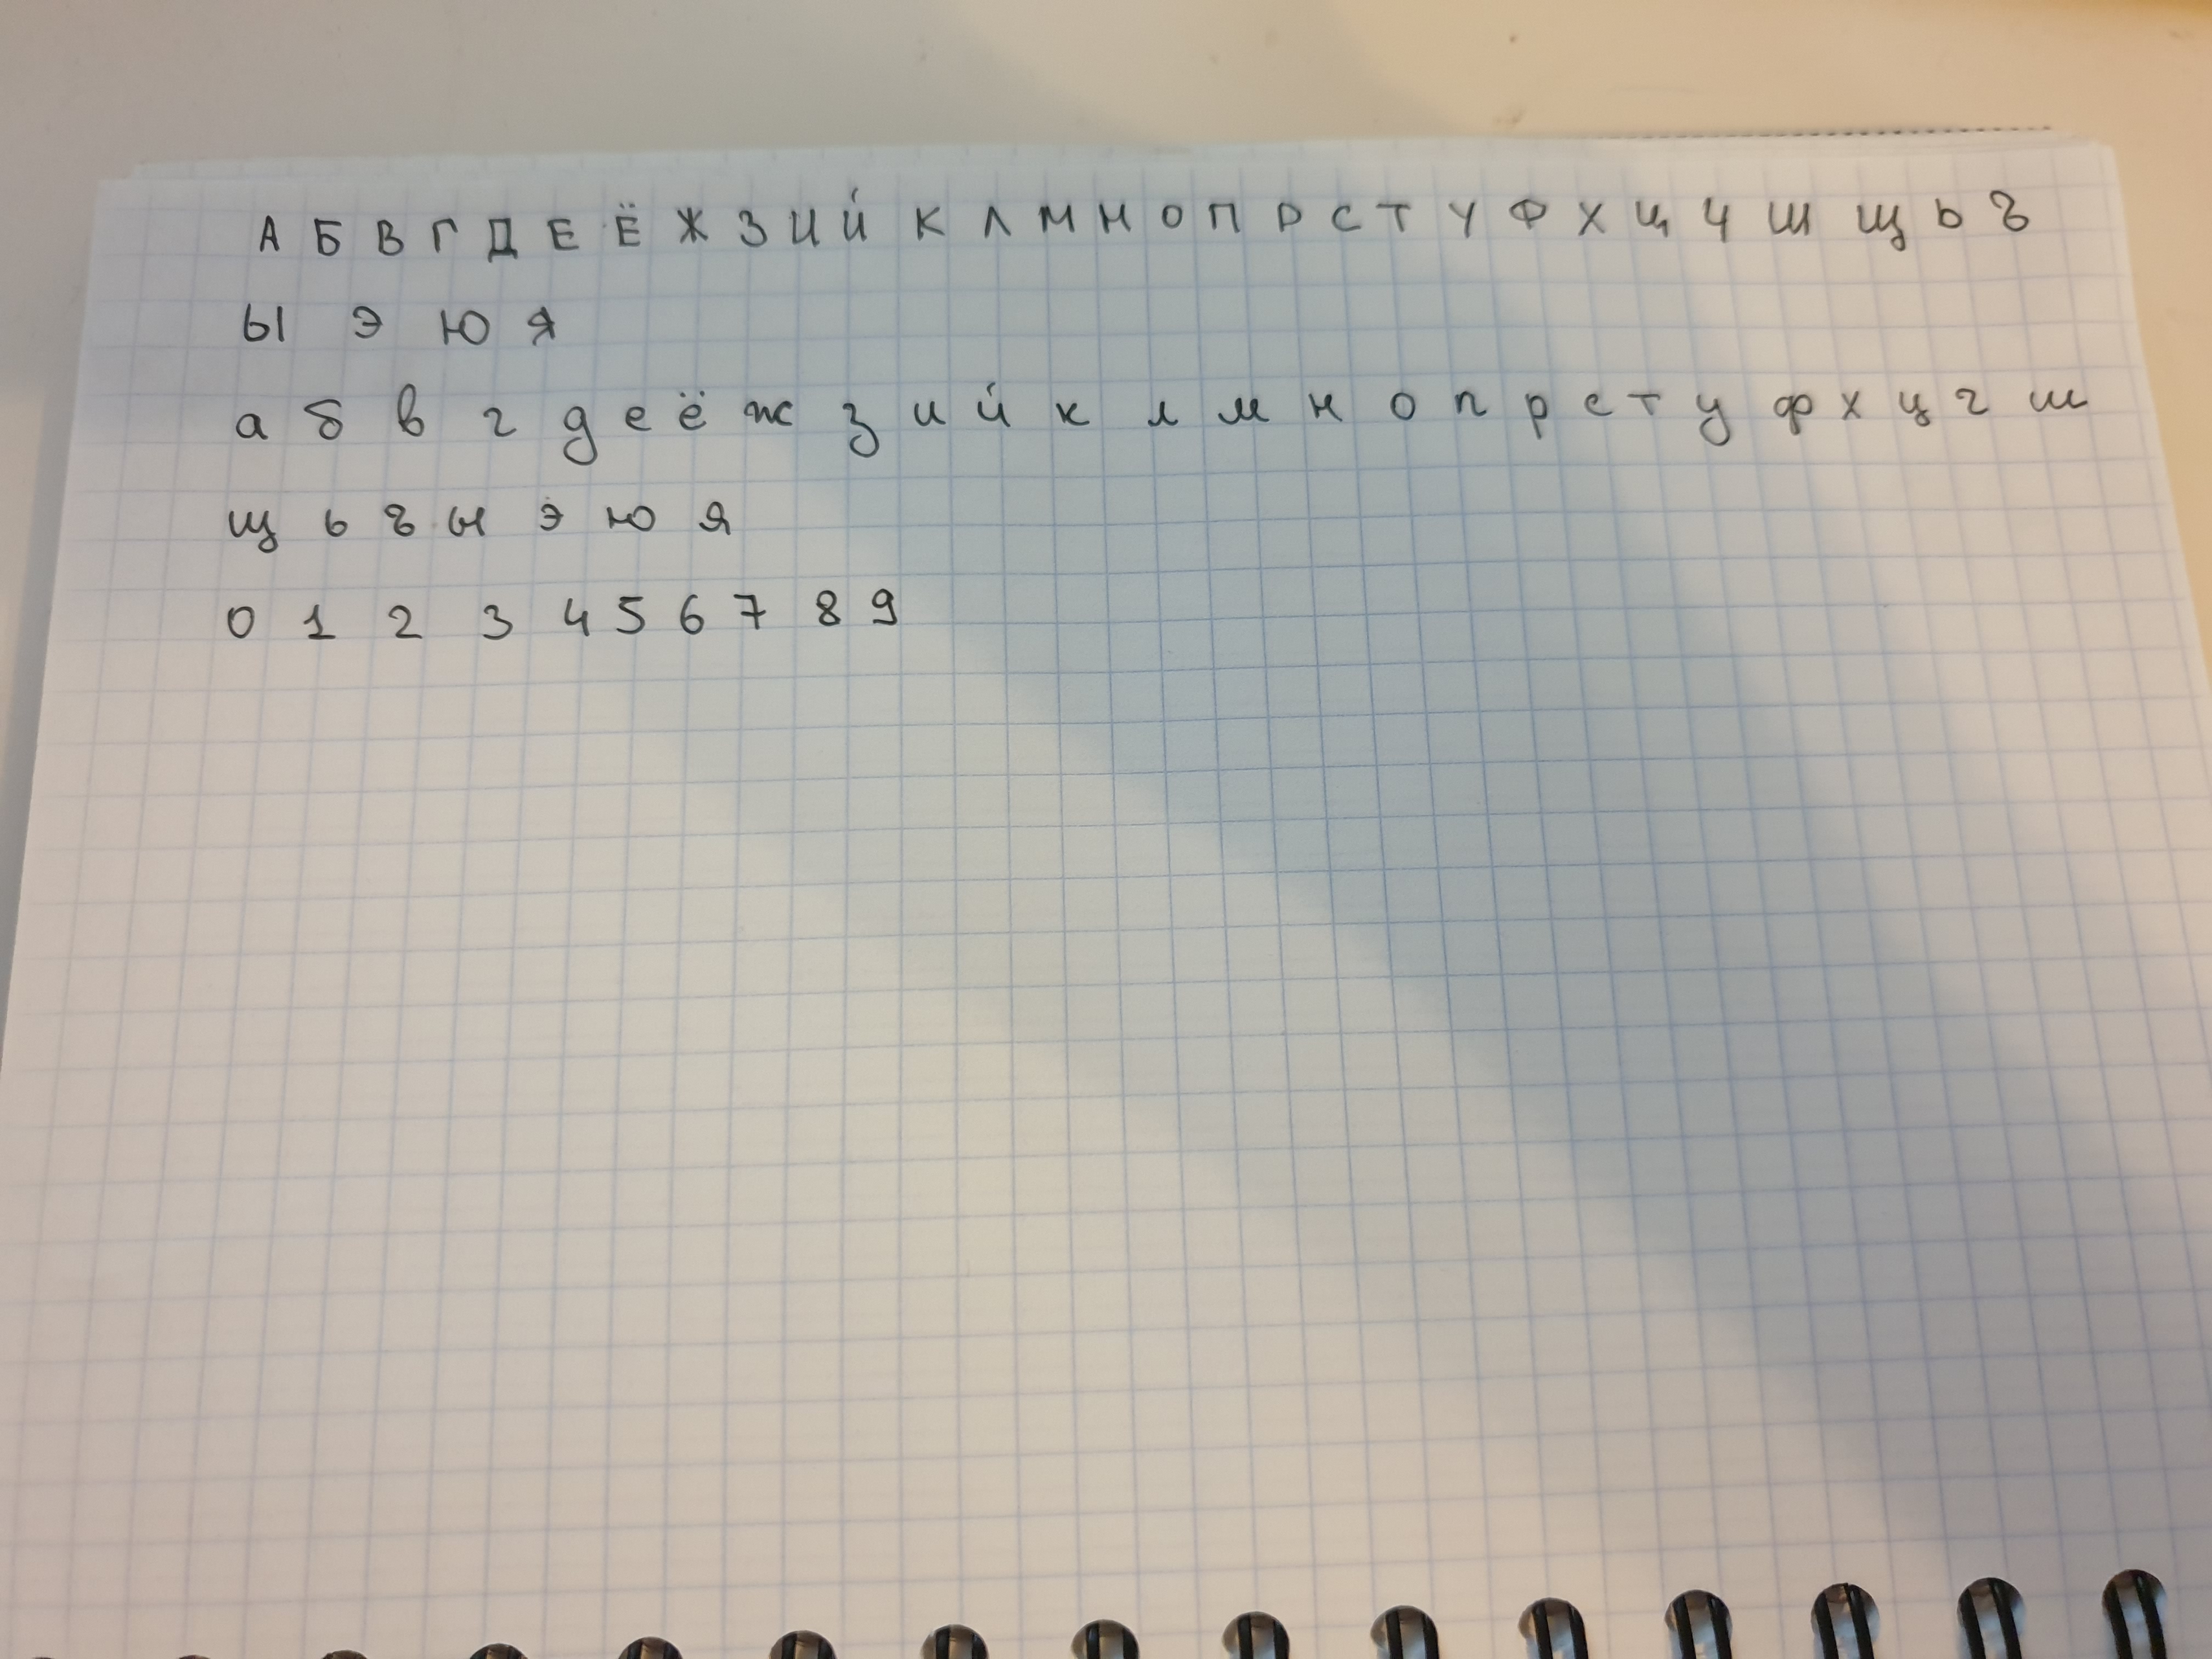 А Б В Г Д Е Ё Ж З И Й К Л М Н О П Р С Т У Ф Х Ц Ч Ш Щ Ь Ъ
Ы Э Ю Я
а б в г д е ё ж з и й к л м н о п р с т у ф х ц ч ш
щ ь ъ ы э ю я
0 1 2 3 4 5 6 7 8 9